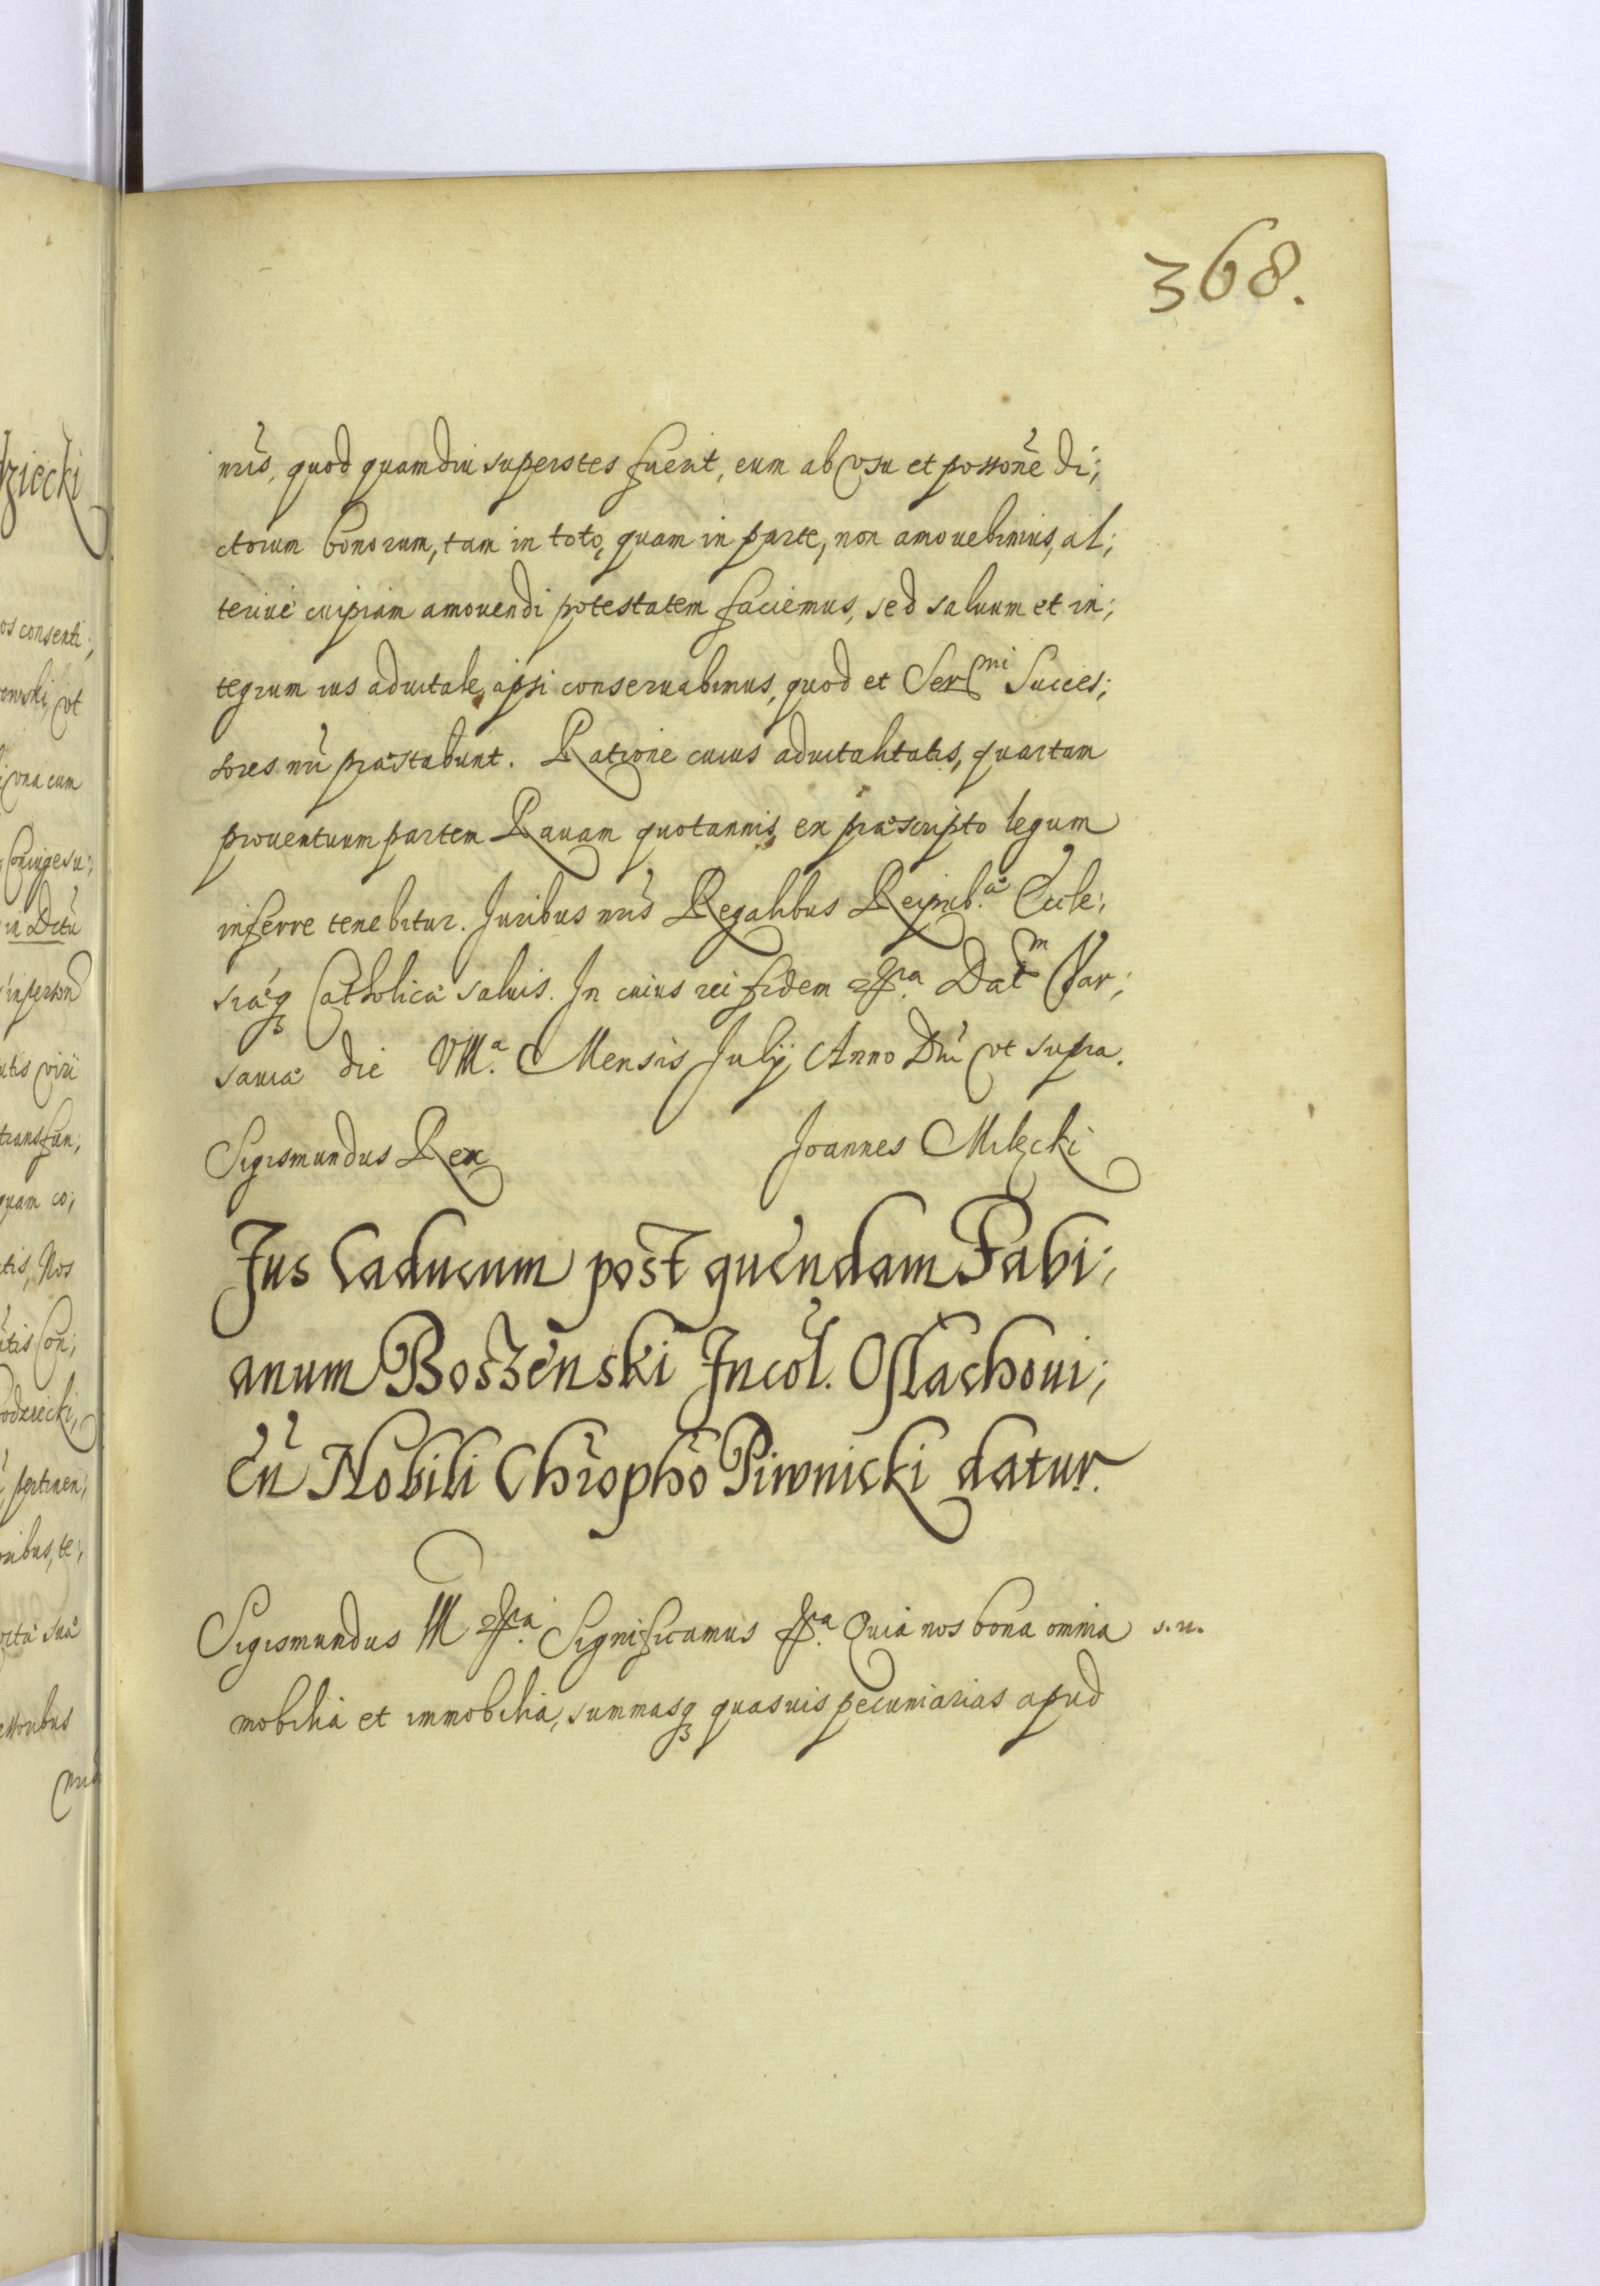 368.
nris, quod quamdiu superstes fuerit, eum ab vsu et possone di;
ctorum bonorum, tam in toto, quam in parte, non amouebimus, al;
teriue cuipiam amouendi potestatem faciemus, sed saluum et in;
tegrum ius aduitale ipsi conseruabimus, quod et Sermi Succes;
sores nri præstabunt. Ratione cuius aduitalitatis, quartam
prouentuum partem Rauam quotannis ex præscripto legum
inferre tenebitur. Juribus nris Regalibus Reipub.æ Eccle;
siæq3 Catholicæ saluis. In cuius rei fidem Datm Var;
sauiæ die VIII.a Mensis Julij Anno Dni vt supra.
Sigismundus Rex Joannes Milecki
Jus Caducum post quendam Fabi;
anum Boszenski Incol. Osslachoui;
en Nobili Chropho Piwnicki datur.
Sigismundus III Significamus Quia nos bona omnia s. n.
mobilia et immobilia, summasq3 quasuis pecuniarias apud
dziecki
os consenti;
ewski, vt
vna cum
Coniuge su;
in Dctu
in person
utis viri
transfun;
quam co;
tis, Nos
utis Con;
odziecki,
pertinen;
oribus, te;
orta sua
essoribus
nris